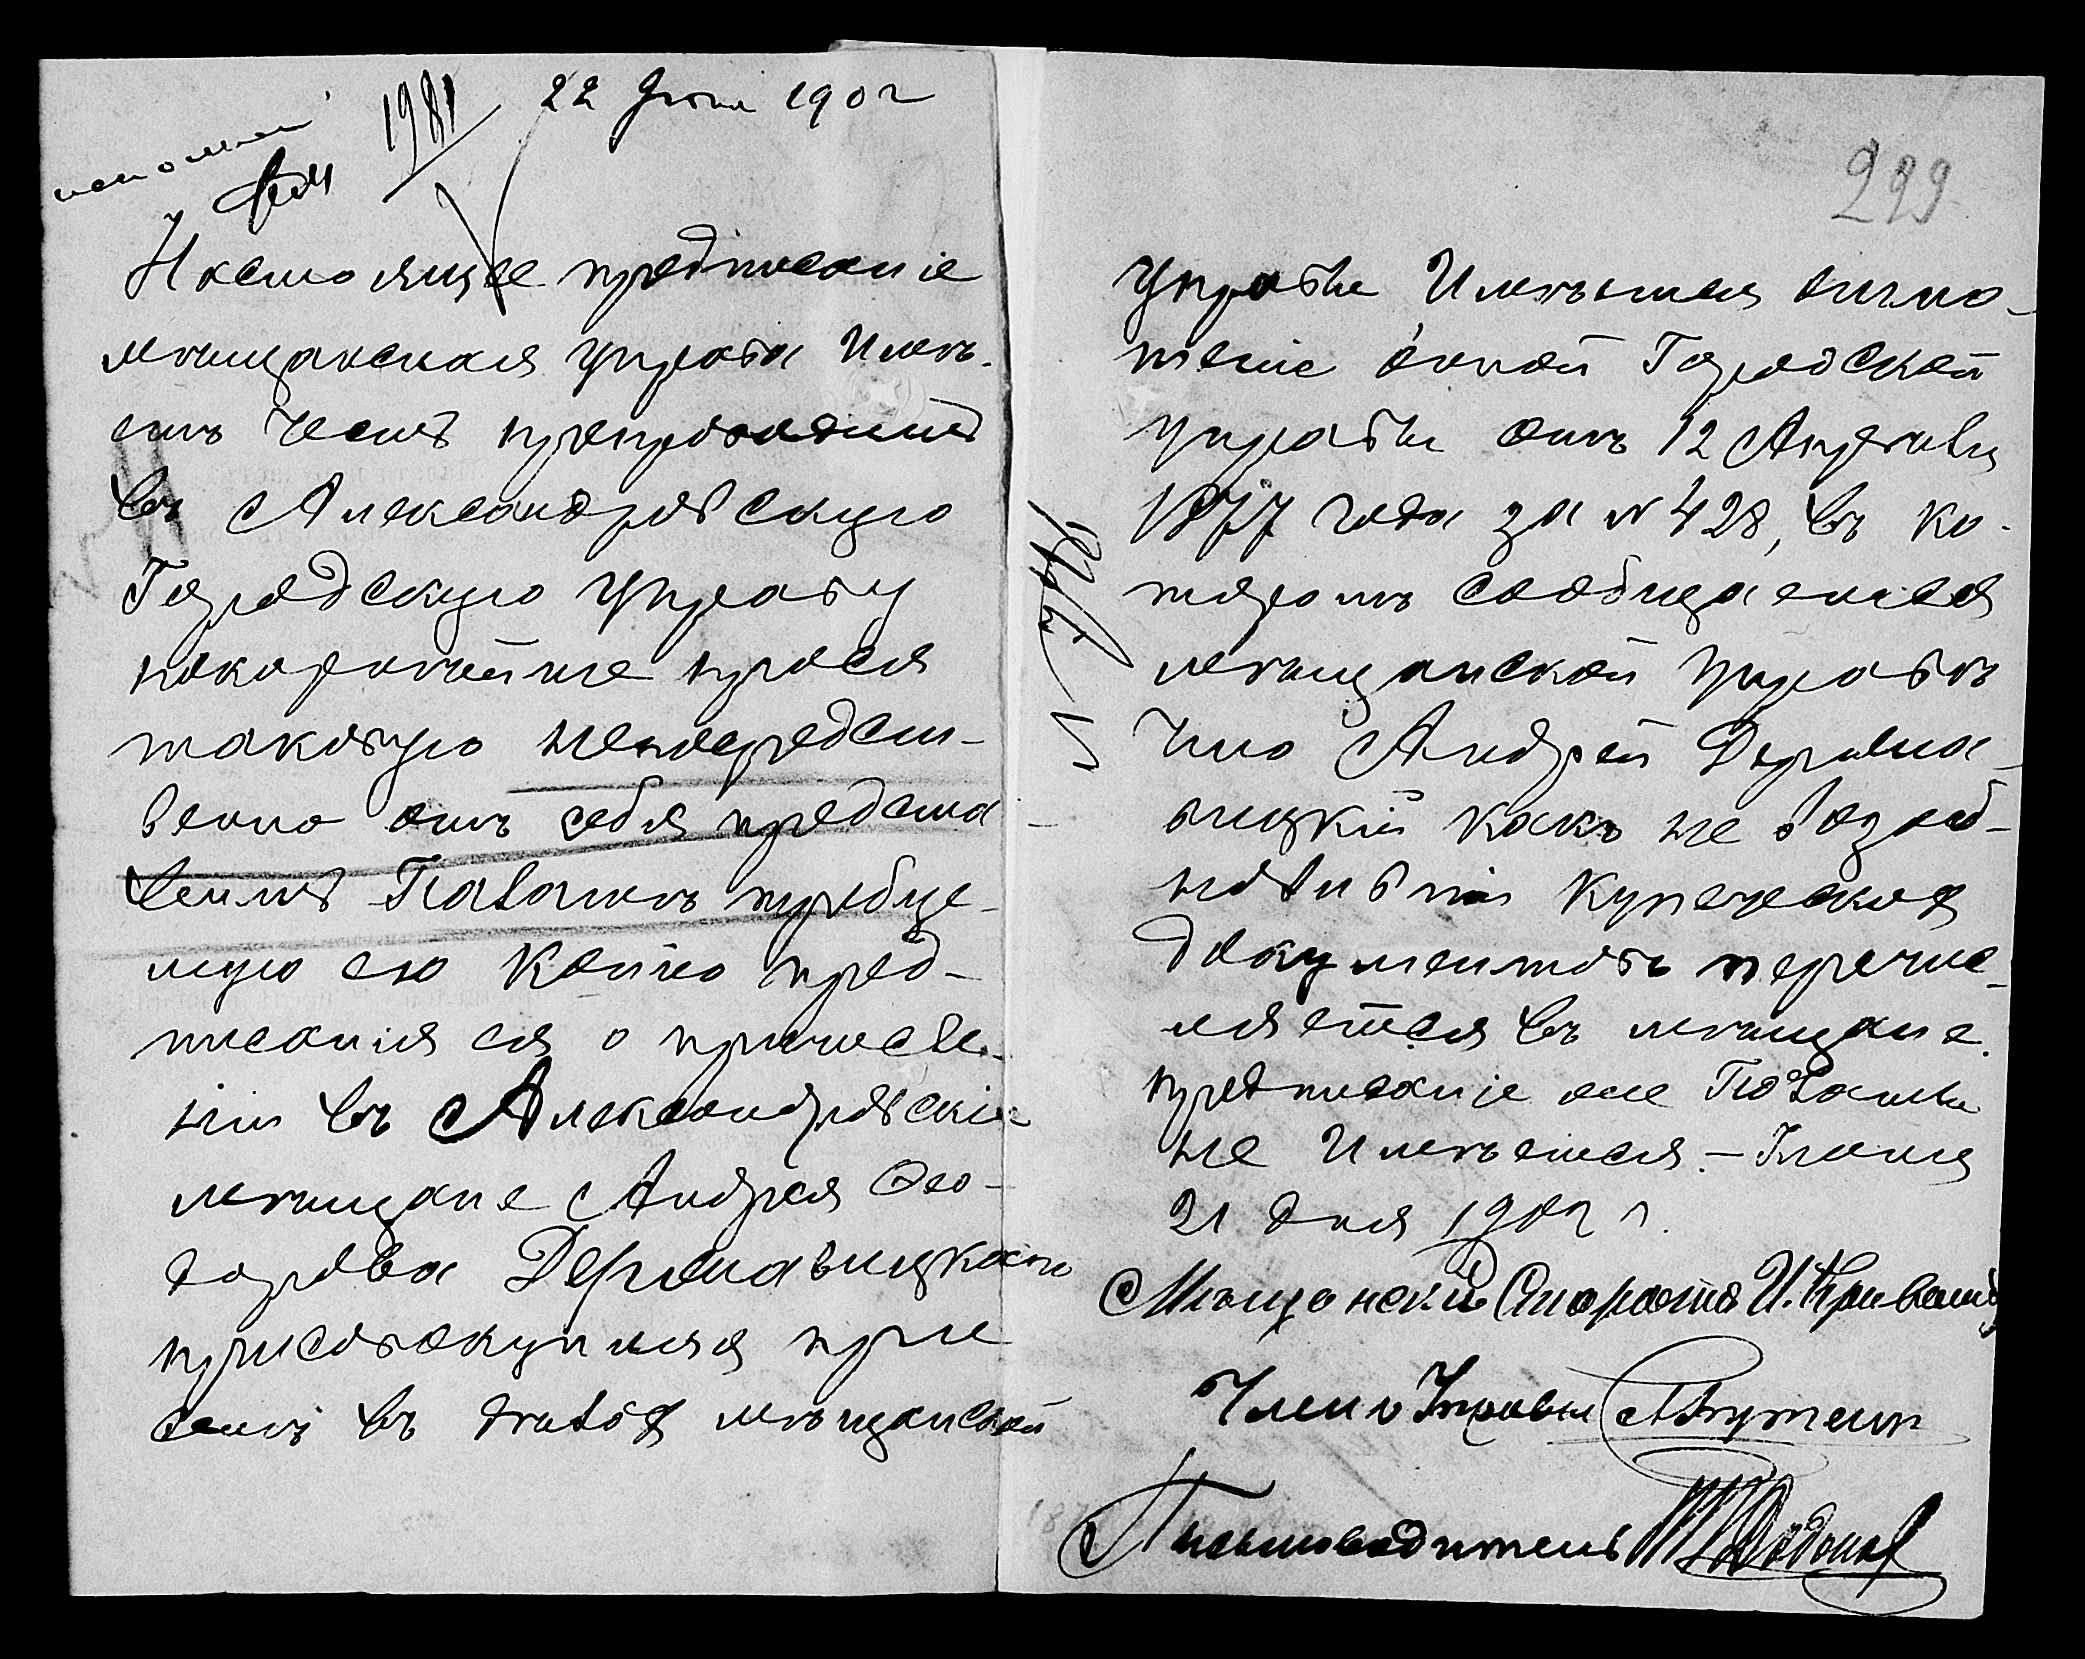 1981 22 Іюня 1902
299
Настоящее предписаніе
мѣщанская управа имѣ-
етъ честь препроводить
въ Александровскую
Городскую Управу
покорнѣйше прося
таковую непосредст-
венно отъ себя предста
вить Палатѣ требуе-
мую ею копію пред-
писанія ея о причисле-
ніи въ Александровскіе
мѣщане Андрея Ѳео-
дорова Держановицкаго
присовокупляя при
семъ въ дѣлѣ мѣщанской
управы имѣется отно-
шеніе оной Городской
управы отъ 12 Апрѣля
1877 года за № 428, въ ко-
торомъ сообщается
мѣщанской управѣ
что Андрей
какъ не возоб-
новившій купеческихъ
документовъ перечис-
ляется въ мѣщане.
предписаніе же Палаты
не имѣется. – Іюня
21 дня 1902 г.
Мѣщанскій Староста И.
Членъ Управы
Письмоводитель